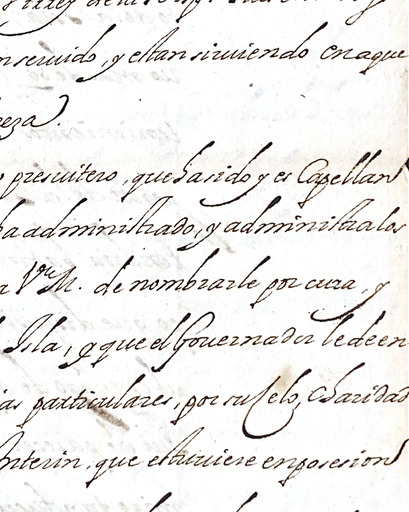 n servido, y estan sirviendo en aque
eza.
presvitero, que ha sido y es Capellan
ha administrado, y administra los
a Vra M. de nombrarle por cura, y
Isla, y que el Governador le de en
ias particulares, por su Celo, Charidad
Interin, que estuviere en posesion